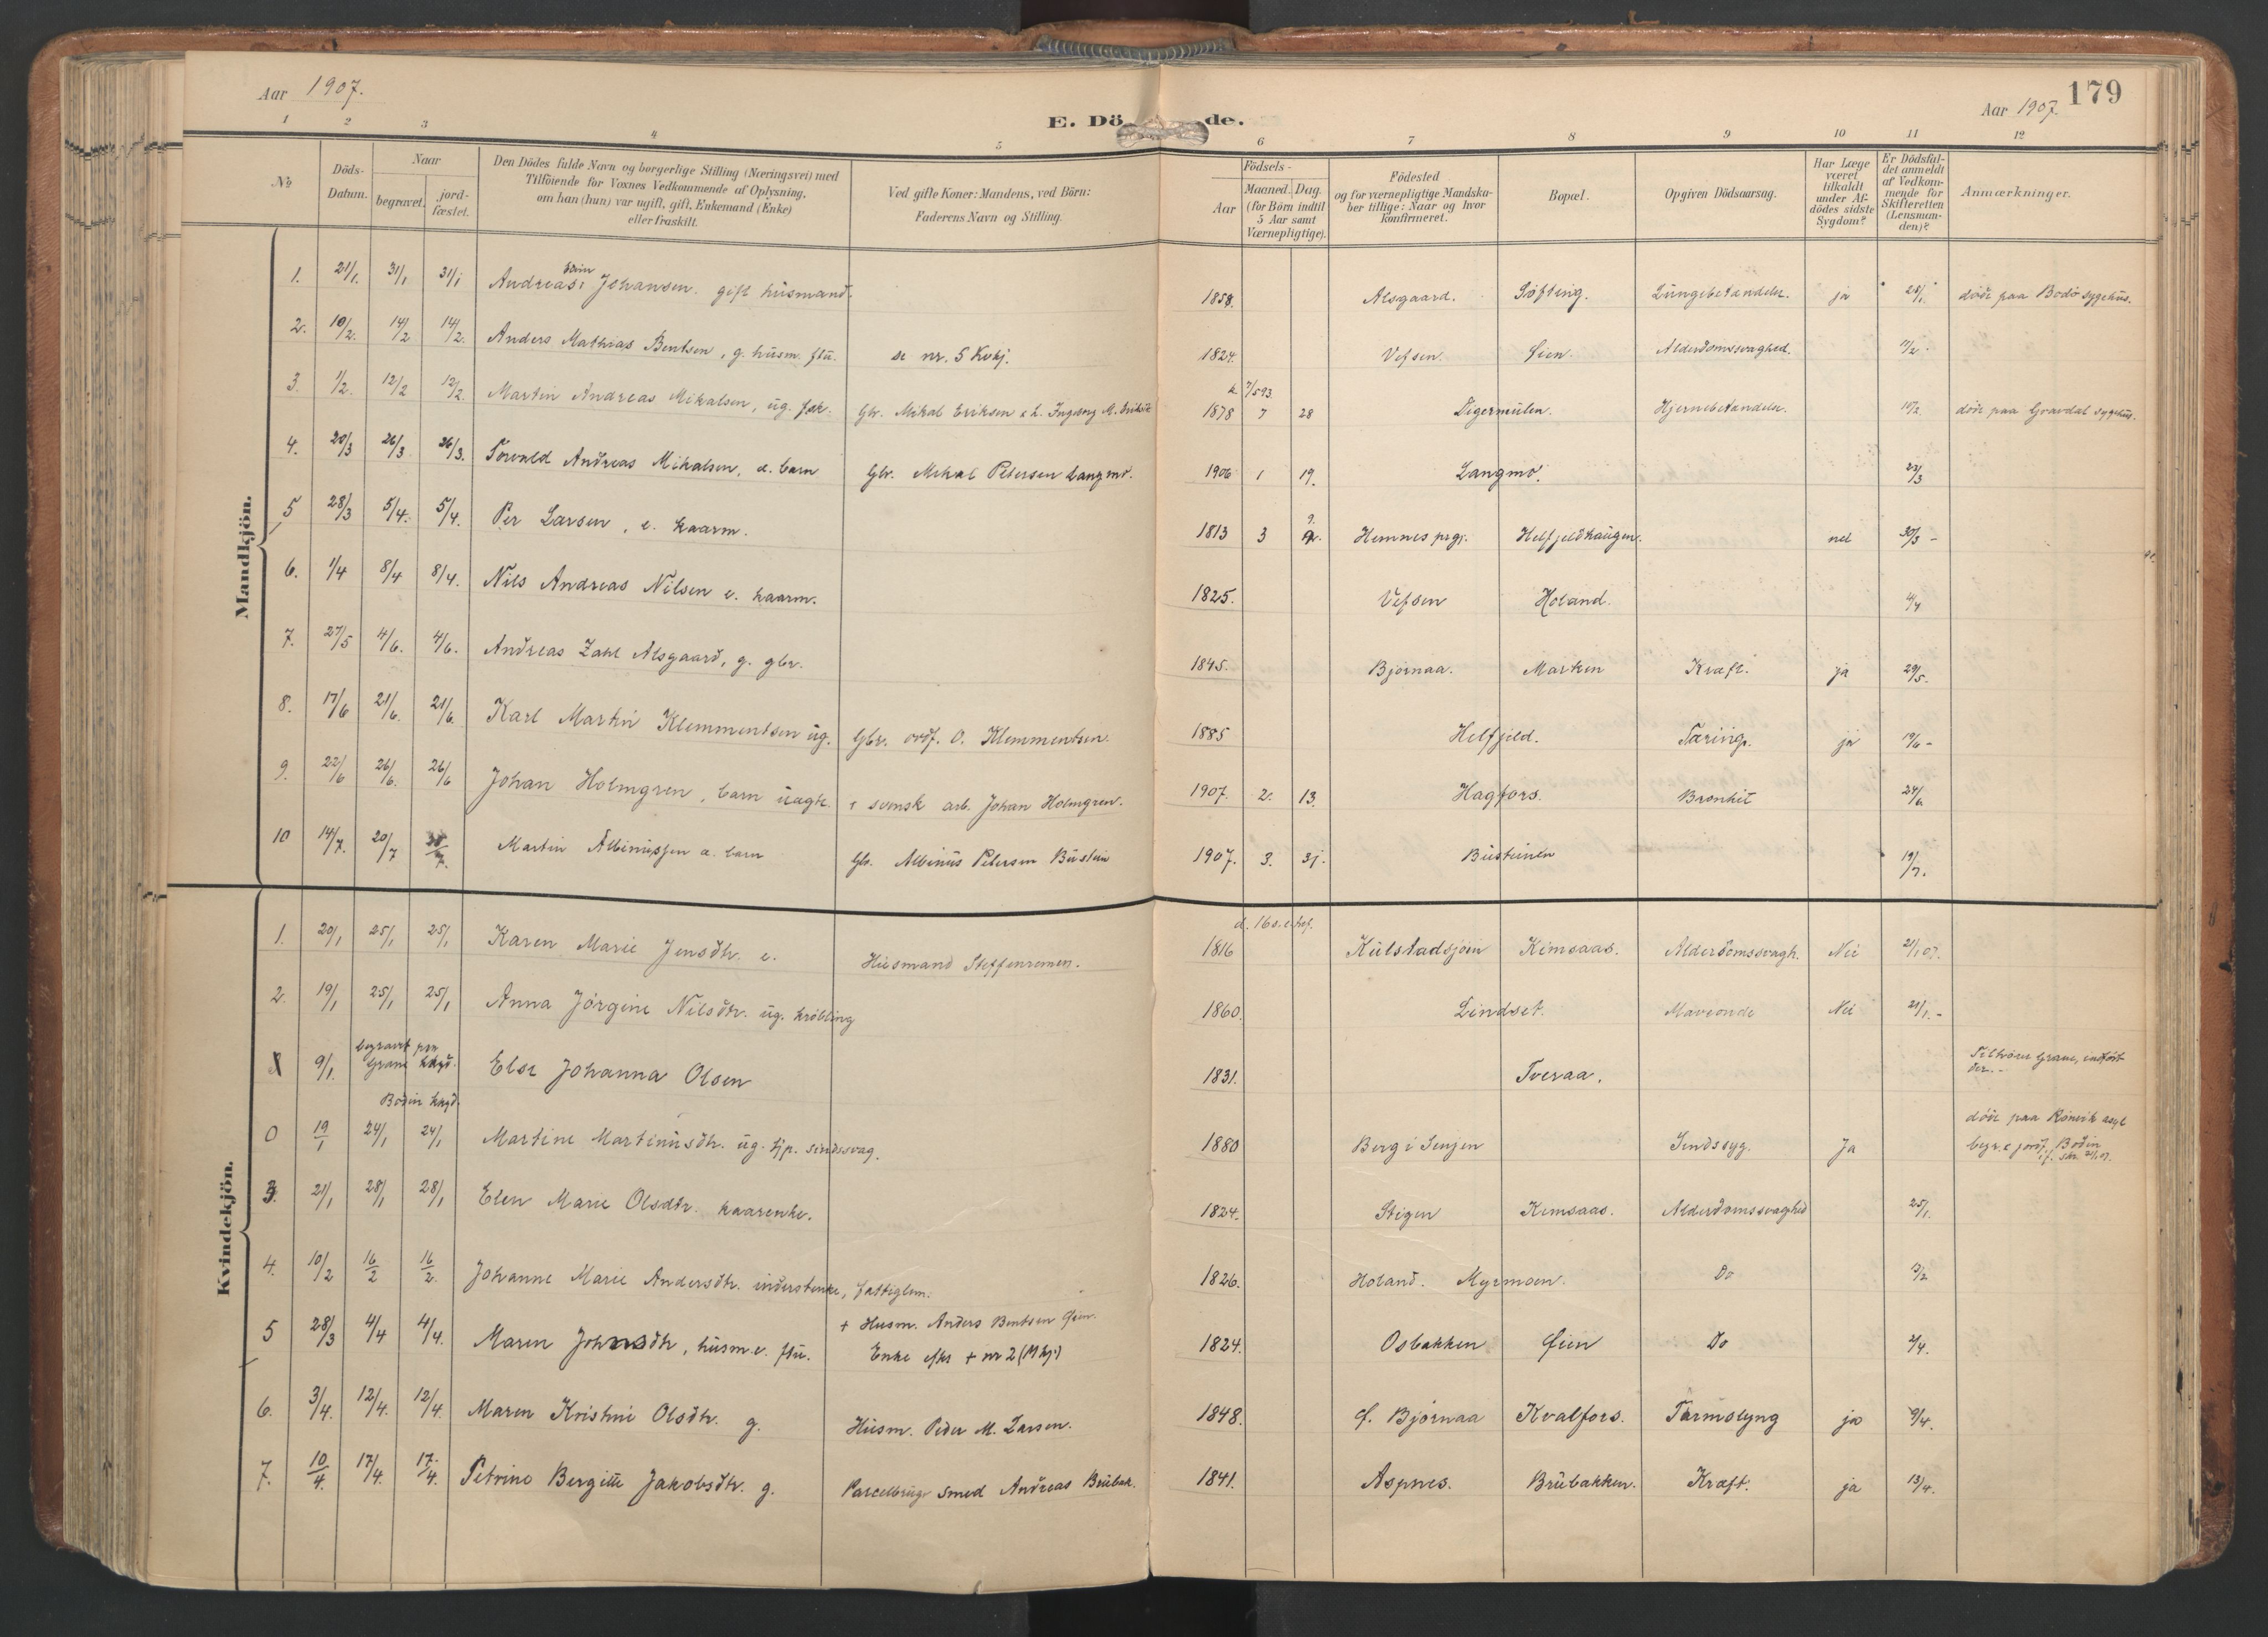 Aar 1907.
E. Dö de.
Aar 1907.
179
1 2 3 4 5 6 7 8 9 10 11 12
No
Döds-Datum.
Naar
begravet.
jord-fæstet.
Den Dödes fulde Navn og borgerlige Stilling (Næringsvei) med
Tilföiende for Voxnes Vedkommende af Oplysning,
om han (hun) var ugift, gift, Enkemand (Enke)
eller fraskilt.
Ved gifte Koner: Mandens, ved Börn:
Faderens Navn og Stilling.
Födsels-
Aar
Maaned. Dag.
(for Börn indtil
5 Aar samt
Værnepligtige).
Födested
og for værnepligtige Mandska-
ber tillige: Naar og hvor
konfirmeret.
Bopæl.
Opgiven Dödsaarsag.
Har Læge
været
tilkaldt
under Af-
dödes sidste
Sygdom?
Er Dödsfal-
det anmeldt
af Vedkom-
mende for
Skifteretten
(Lensman-
den)?
Anmærkninger.
Mandkjön.
1. 21/1. 31/1 31/1 Andreas Johansen. gift husmand. 1858. Alsgaard. Søfting. Lungebetændelse. ja 28/1. døde paa Bodø sygehus.
2. 10/2. 14/2 14/2. Anders Mathias Bentsen, g. husm. ftu. se nr. 5 Kvkj. 1824. Vefsen. Øien. Alderdomssvaghed. 11/2.
3. 1/2. 12/2 12/2. Martin Andreas Mikalsen, ug. fsk. Gbr. Mikal Eriksen 1878 7 28 Digermulen. Hjernebetændelse. 10/2. døde paa Gravdal sygehus.
4. 20/3 26/3 26/3. Torvald Andreas Mikalsen, e. barn Gbr. Mikal Petersen Langmo. 1906 1 19. Langmo. 23/3
5 28/3 5/4. 5/4. Per Larsen, e. kaarm. 1813 3 9. Hemnes prgj. Helfjeldhaugen. nei 30/3 -
6. 1/4 8/4 8/4. Nils Andreas Nilsen e. kaarm. 1825. Vefsen Holand. 4/4
7. 27/5 4/6. 4/6. Andreas Zahl Alsgaard, g. gbr. 1845. Bjørnaa. Marken Kræft. ja 29/5.
8. 17/6 21/6. 21/6. Karl Martin Klemmentsen ug. Gbr. ordf. O. Klemmentsen. 1885 Helfjeld. Tæring. ja 19/6 -
9. 22/6 26/6. 26/6 Johan Holmgren, barn uægte. svensk arb. Johan Holmgren. 1907. 2. 13. Hagfors. Bronkit 24/6
10 14/7. 20/7 20/7. Martin Albinussen æ. barn Gbr. Albinus Petersen Bustein 1907. 3. 31. Busteinen 19/7.
Kvindekjön.
1. 20/1 25/1 25/1 Karen Marie Jensdtr. e. Husmand Steffenremen. 1816 Kulstadsjøen Kimsaas. Alderdomssvagh. Nei 21/1 07.
2. 19/1 25/1 25/1 Anna Jørgine Nilsdtr. ug. krøbling 1860. Lindset. Maveonde Nei 21/1. -
9/1. begravet paa Grane kkgd. Else Johanna Olsen 1831. Tveraa. Tilhører Grane, indført der. -
Bodin kkgd.
0 19/1 24/1 24/1 Martine Martinusdtr. ug. tjp. sindssvag. 1880 Berg i Senjen Sindssyg. Ja døde paa Rønvik asyl begr. & jordf. Bodin
3. 21/1 28/1 28/1 Elen Marie Olsdtr. kaarenke. 1824. Stigen Kimsaas. Alderdomssvaghed 25/1.
4. 10/2 16/2 16/2. Johanne Marie Andersdtr. inderstenke, fattiglem. 1826. Holand. Myrmoen. Do 13/2
5 28/3 4/4 4/4. Maren Johnsdtr, husm.e. ftu. + Husm. Anders Bentsen Øien.
Enke efter + nr 2 (Mkj.) 1824. Osbakken Øien Do 2/4.
6. 3/4. 12/4. 12/4. Maren Kristine Olsdtr. g. Husm. Peder M. Larsen. 1848. f. Bjørnaa Kvalfors. Tarmslyng ja 9/4.
7. 10/4. 17/4. 17/4. Petrine Bergitte Jakobsdtr. g. Parcelbruger smed Andreas Brubak. 1841. Aspnes. Brubakken. Kræft. ja 13/4.